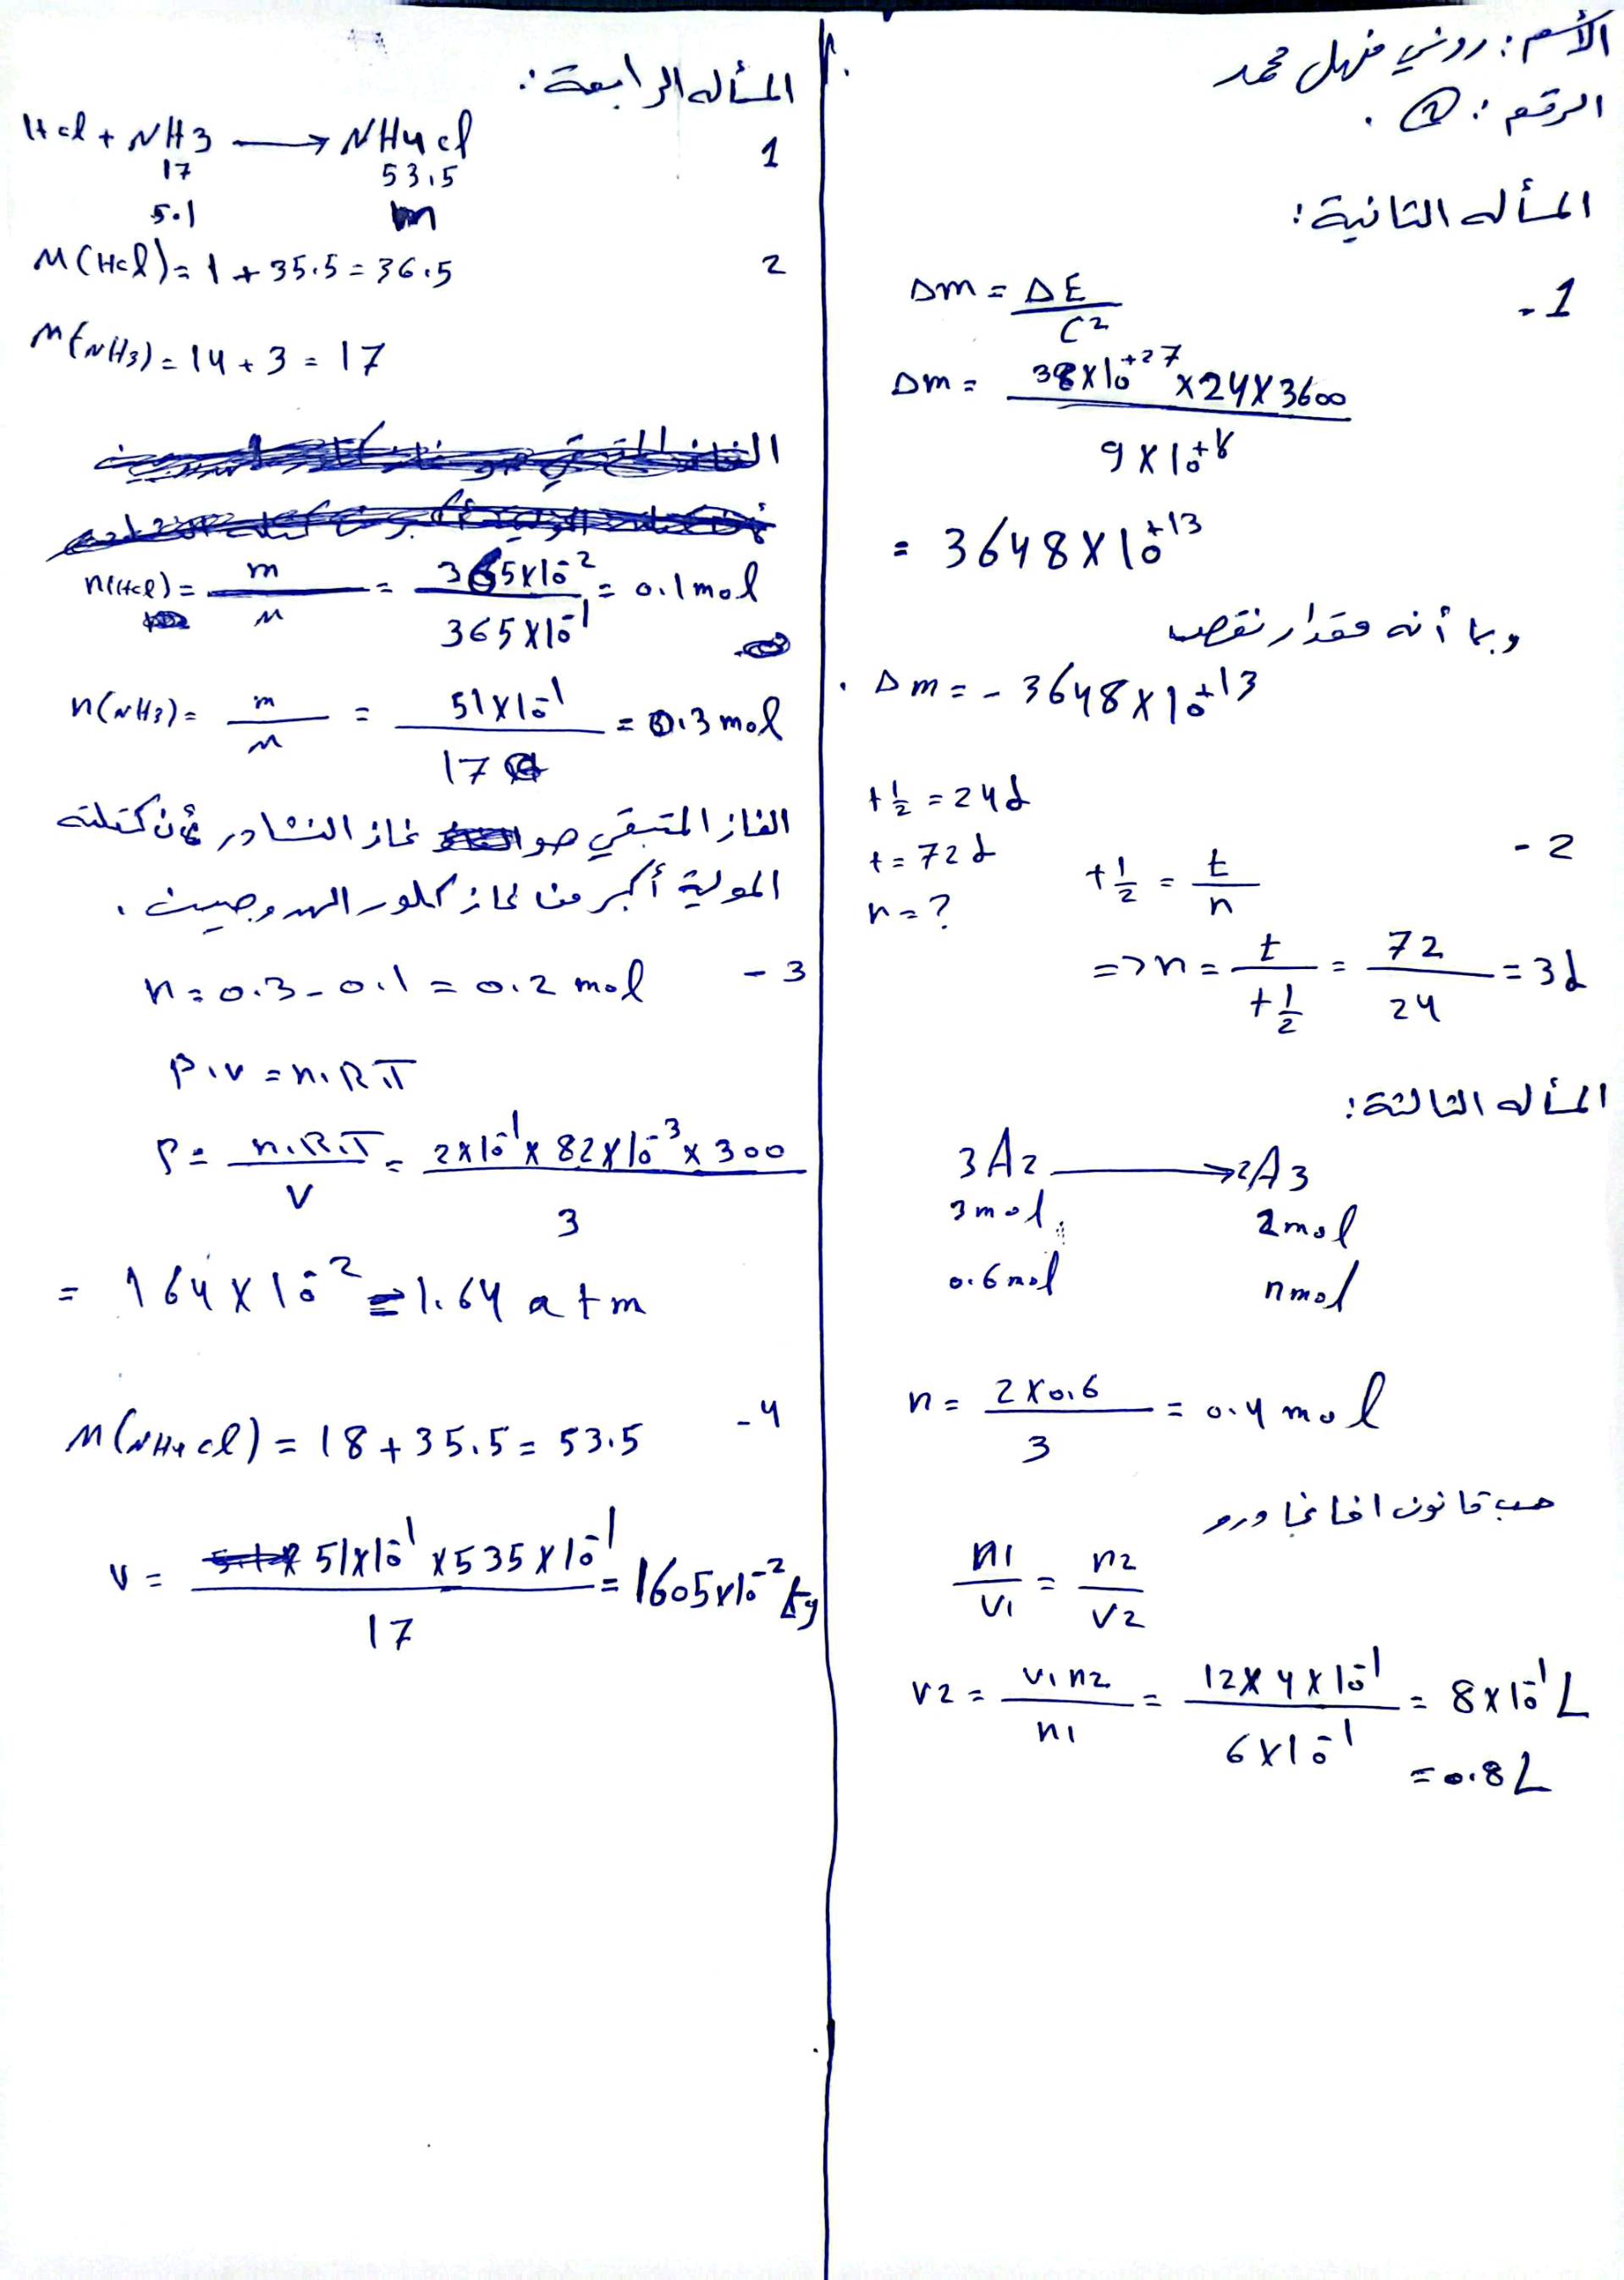 الأسم : روني منهل محمد
الرقم : 2 .
المسأله الثانية :
1 -
Δm = ΔE / C²
Δm = 38×10⁺²⁷ × 24 × 3600 / 9×10⁺⁸
= 3648×10⁺¹³
وبما أنه مقدار نقصب
Δm = - 3648×10⁺¹³
2 -
t½ = 24d
t = 72d
n = ?
t½ = t / n
=> n = t / t½ = 72 / 24 = 3d
المسأله الثالثة :
3A2 → 2A3
3mol 2mol
0.6mol nmol
n = 2×0.6 / 3 = 0.4 mol
حسب قانون افاغادرو
n1 / V1 = n2 / V2
V2 = V1 n2 / n1 = 12×4×10⁻¹ / 6×10⁻¹ = 8×10⁻¹ L
= 0.8 L
المسأله الرابعة :
1
Hcl + NH3 → NH4cl
17 53.5
5.1 m
2
M(Hcl) = 1 + 35.5 = 36.5
M(NH3) = 14 + 3 = 17
n(Hcl) = m / M = 365×10⁻² / 365×10⁻¹ = 0.1 mol
n(NH3) = m / M = 51×10⁻¹ / 17 = 0.3 mol
الغاز المتبقي هو غاز النشادر لأن كتلته
المولية أكبر من غاز كلور الهيدروجين .
3 -
n = 0.3 - 0.1 = 0.2 mol
P.V = n.R.T
P = n.R.T / V = 2×10⁻¹ × 82×10⁻³ × 300 / 3
= 164×10⁻² = 1.64 atm
4 -
M(NH4cl) = 18 + 35.5 = 53.5
V = 51×10⁻¹ × 535×10⁻¹ / 17 = 1605×10⁻² kg